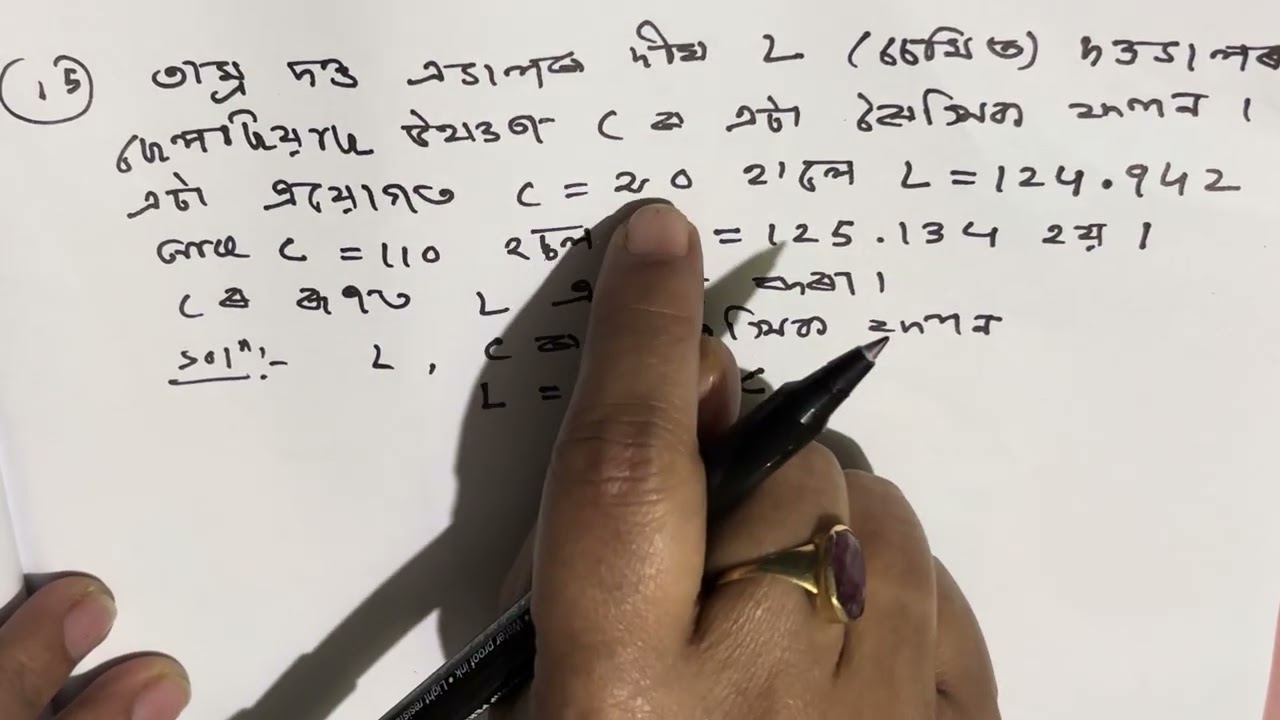 (15) তাম্ৰ দণ্ড এডালৰ দীঘ L (চেমিত) দণ্ডডালৰ
চেলচিয়াছ উষ্ণতা C ৰ এটা ৰৈখিক ফলন ।
এটা প্ৰয়োগত C = 20 হ'লে L = 124.942
আৰু C = 110 হলে = 125.134 হয় ।
C ৰ ৰূপত L কৰা ।
Solⁿ:- L , C ৰ ফলন
L = C
Water proof ink • Light resis